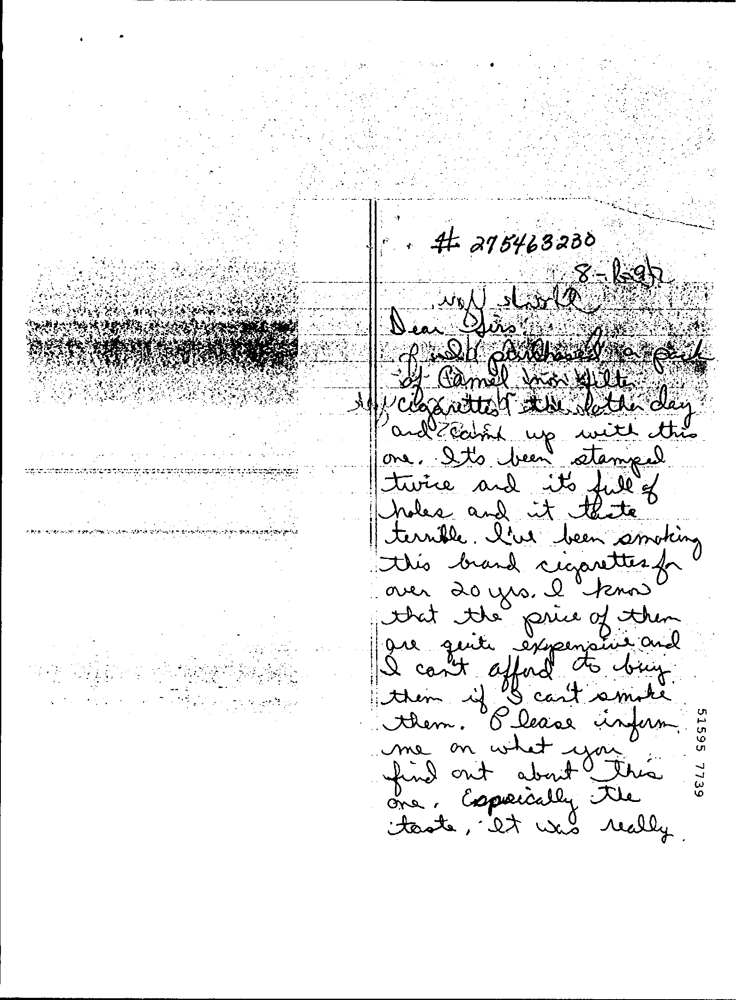 # 275463230
Dear Sirs,
I purchased a pack
of Camel non filter
cigarettes the other day
and came up with this
one. It's been stamped
twice and it's full of
holes and it taste
terrible. I've been smoking
this brand cigarettes for
over 20 yrs. I know
that the price of them
are quite exspensive and
I can't afford to buy
them if I can't smoke
them. Please inform
me on what you
find out about this
one. Espicically the
taste, It was really
51595 7739